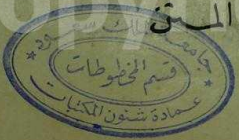 المتن
جامعة الملك سعود
قسم المخطوطات
عمادة شئون المكتبات